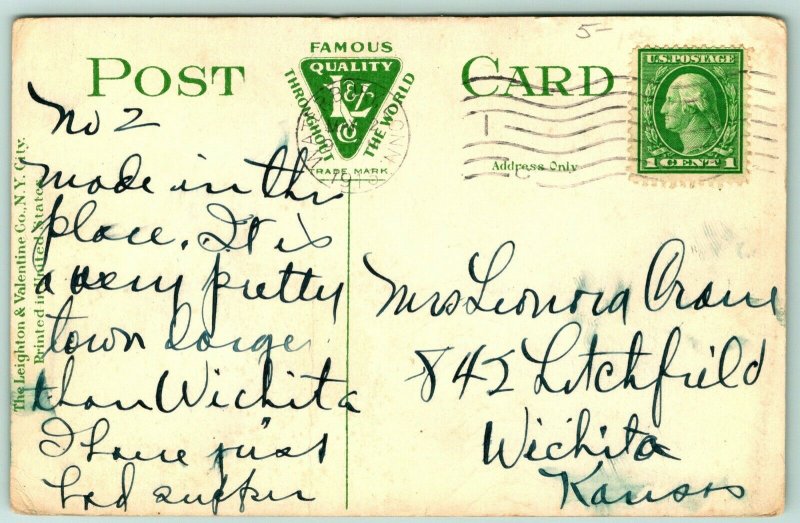 5-
POST CARD
FAMOUS
QUALITY
THROUGHOUT
THE WORLD
L&V
Co
TRADE MARK
WATERBURY
CONN
1913
U.S. POSTAGE
1 CENT 1
Address Only
The Leighton & Valentine Co., N.Y. City.
Printed in United States
No 2
Made in this
place. It is
a very pretty
town large
than Wichita
I have just
had supper
Mrs Leonora Crane
842 Litchfield
Wichita
Kansas